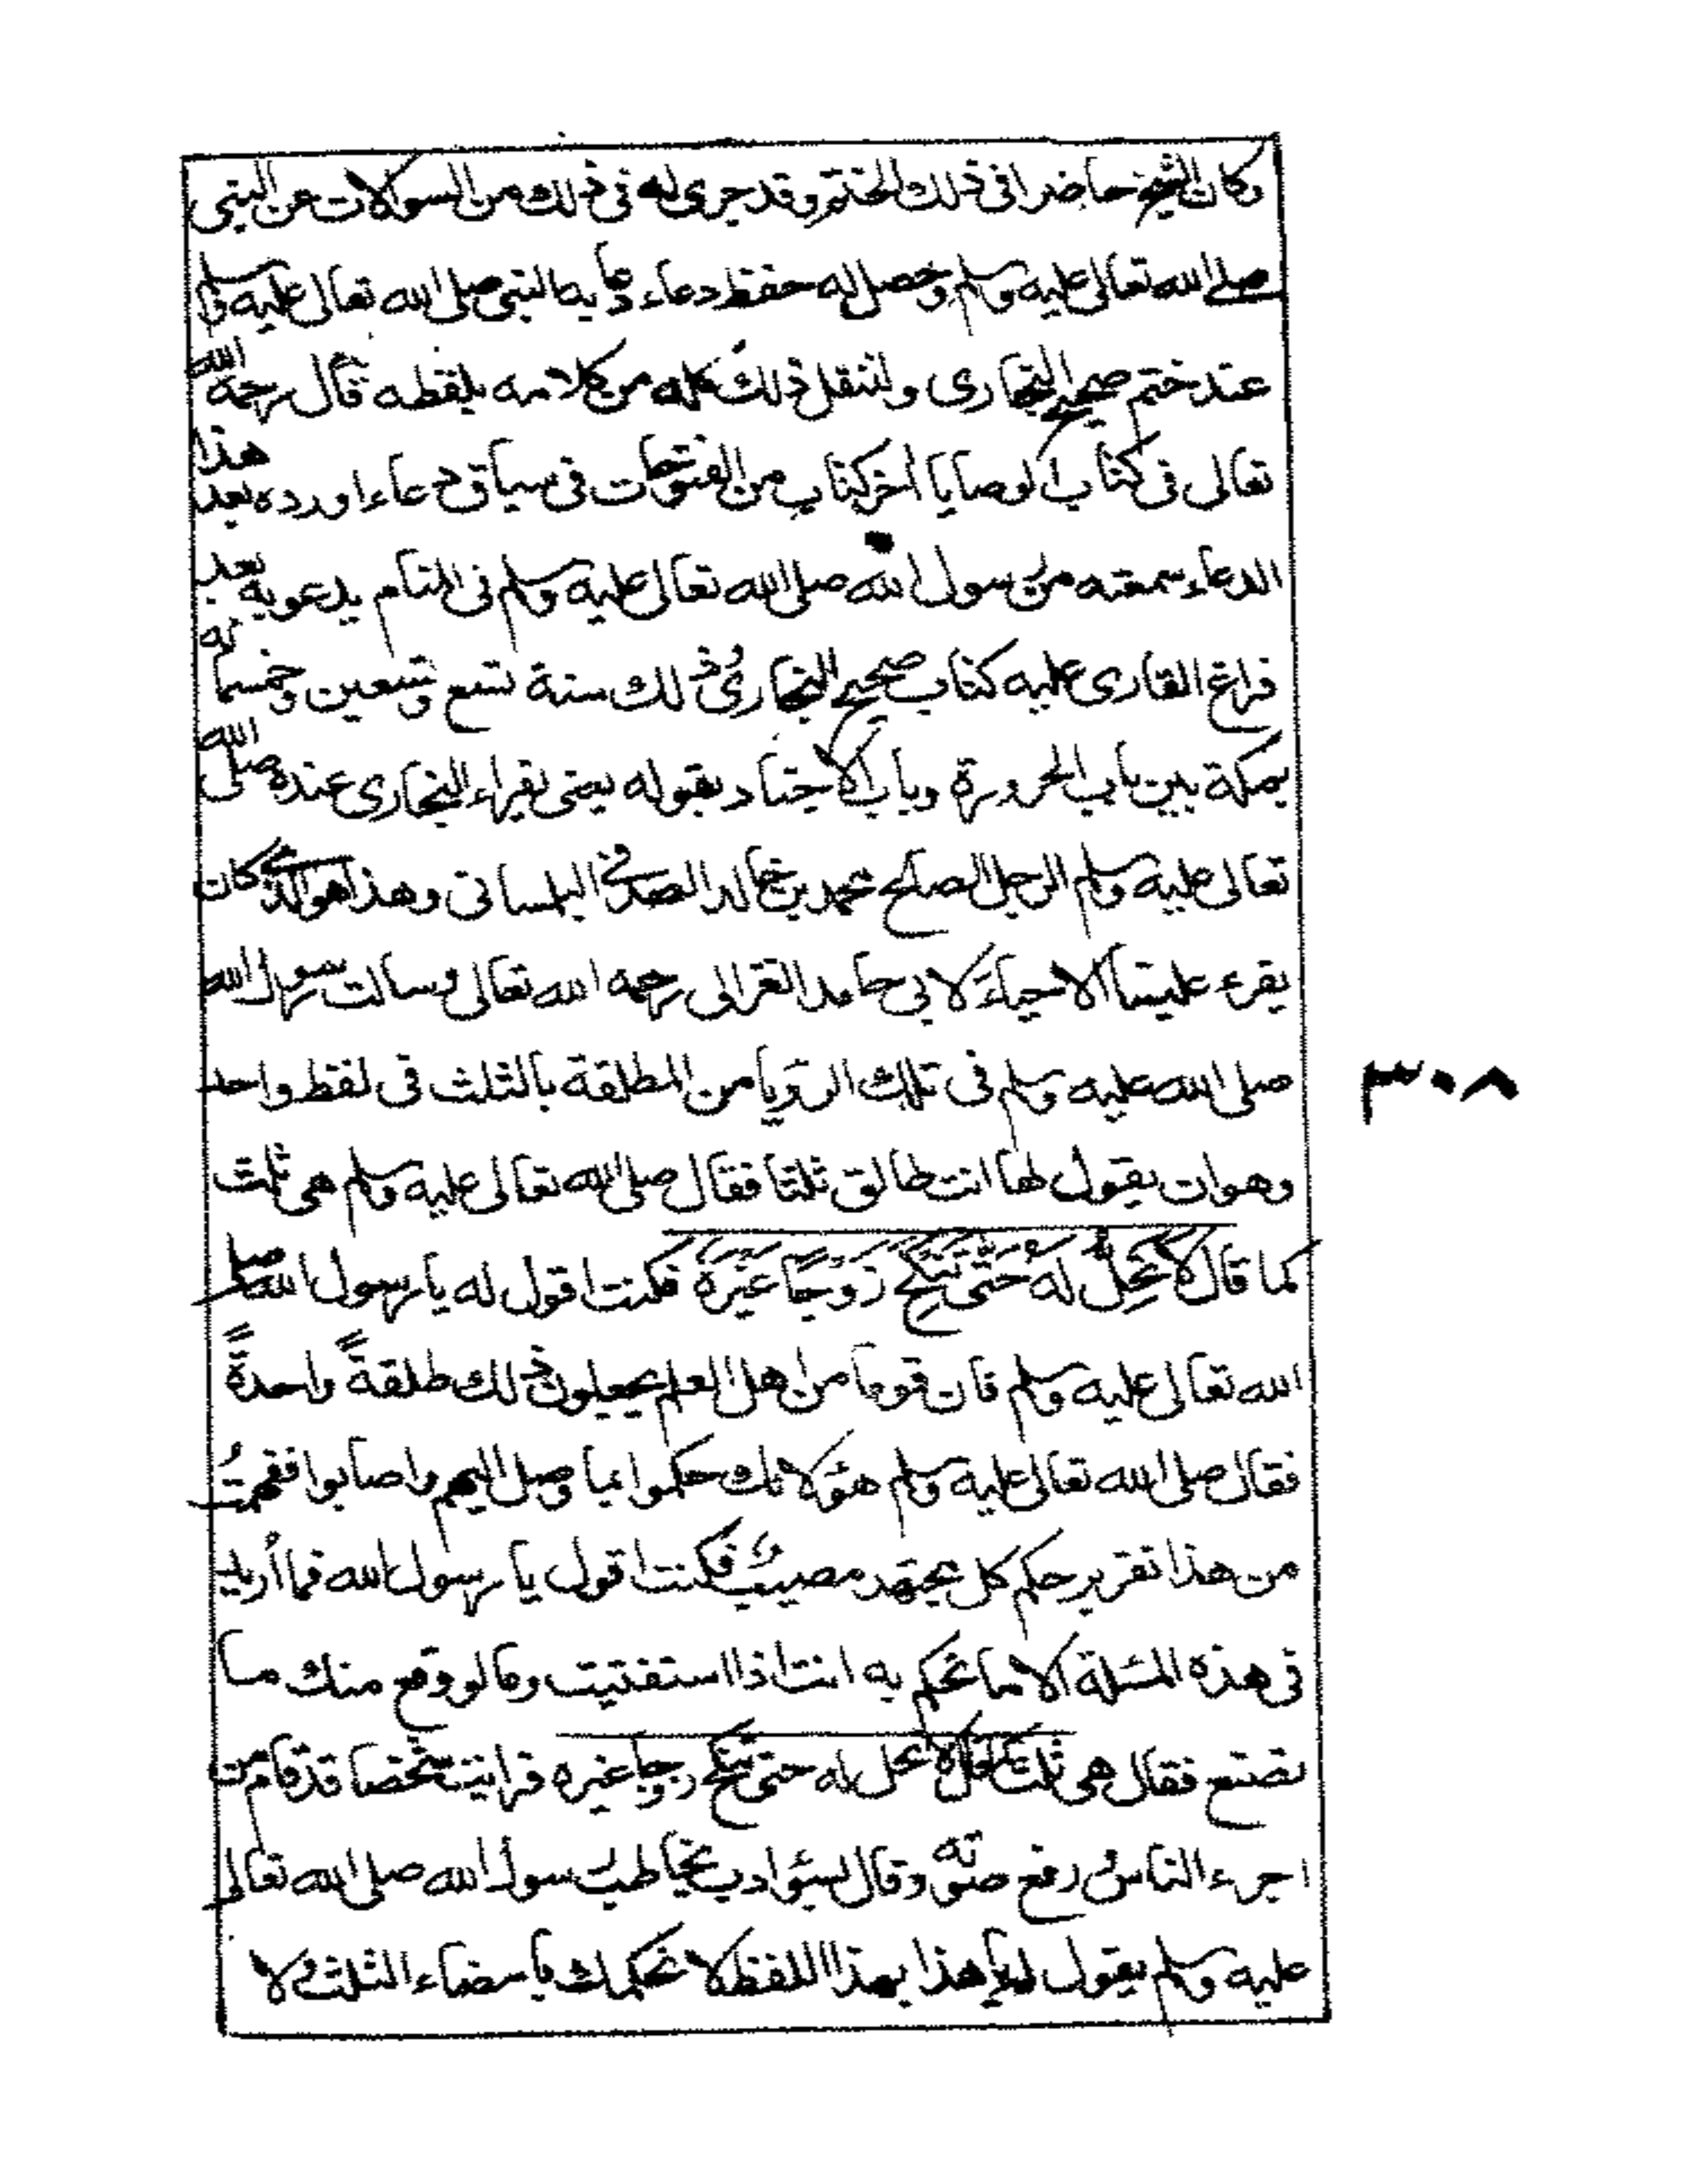 وكان الشيخ حاضرا فى ذلك الختم وقد جرى له فى ذلك من السولات عن النبى
صلى الله تعالى عليه وسلم وحصل له حفظ دعاء دعا به النبى صلى الله تعالى عليه وسلم
عند ختم صحيح البخارى ولننقل ذلك كله من كلامه بلفظه قال رحمه الله
تعالى فى كتاب الوصايا اخر كتاب من الفتوحات فى سياق دعاء اورده بعد هذا
الدعاء سمعته من رسول الله صلى الله تعالى عليه وسلم فى المنام يدعو به بعد
فراغ القارى عليه كتاب صحيح البخارى وذلك سنة تسع وتسعين وخمسمائه
بمكة بين باب الحرورة وباب الاجياد بقوله يعنى يقراء البخارى عنده صلى الله
تعالى عليه وسلم الرجل الصالح محمد بن خالد الصدفى التلمسانى وهذا هو الذى كان
يقرء علينا الاحياء لابى حامد الغزالى رحمه الله تعالى وسالت رسول الله
صلى الله عليه وسلم فى تلك الرؤيا من المطلقة بالثلث فى لفظ واحد
وهوان يقول لها انت طالق ثلثا فقال صلى الله تعالى عليه وسلم هى ثلث
كما قال لا تَحِلُّ لَهُ حَتّى تَنْكِحَ زَوْجًا غَيْرَهُ فكنت اقول له يا رسول الله صلى
الله تعالى عليه وسلم فان قوما من اهل العلم يجعلون ذلك طلقةً واحدةً
فقال صلى الله تعالى عليه وسلم هؤلائك حكموا بما وصل اليهم واصابوا ففهمتُ
من هذا تقرير حكم كل مجتهد مصيب فكنت اقول يا رسول الله فما أريد
فى هذه المسئلة الا ما تحكم به انت اذا استفتيت وما لو وقع منك ما
تصنع فقال هى ثلث كما قال لا تحل له حتى تنكح زوجا غيره فرايت شخصا قد قام من
اخرء الناس ورفع صوته وقال بسؤ ادب يخاطب رسول الله صلى الله تعالى
عليه وسلم يقول له يا هذا بهذا اللفظ لا نحكمك بامضاء الثلث ولا
٣٠٨